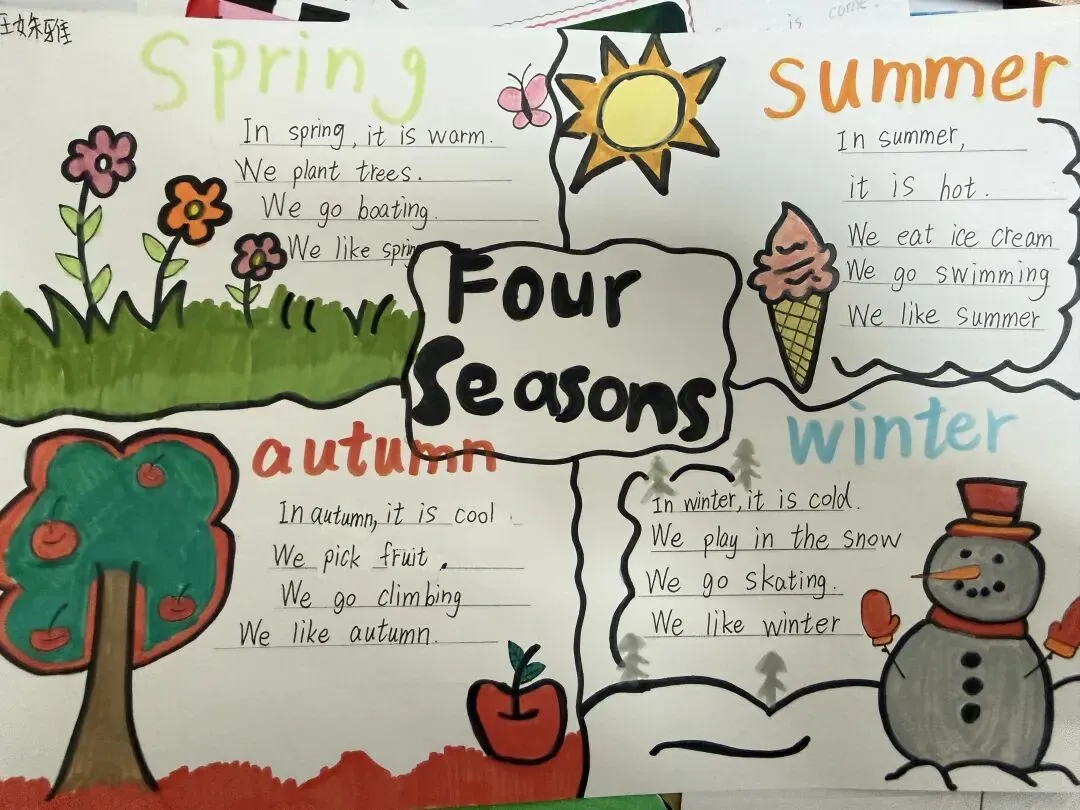 spring
In spring, it is warm.
We plant trees.
We go boating.
We like spring
summer
In summer,
it is hot.
We eat ice cream
We go swimming
We like summer
Four
Seasons
autumn
In autumn, it is cool.
We pick fruit.
We go climbing
We like autumn.
winter
In winter, it is cold.
We play in the snow
We go skating.
We like winter
is come.